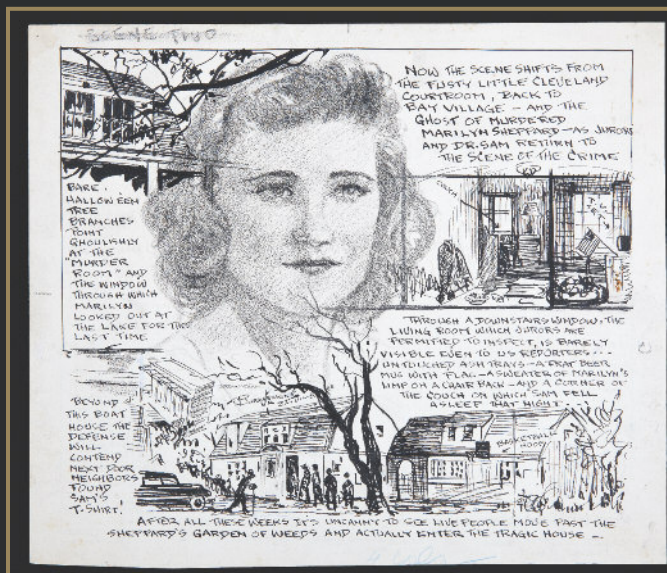 SCENE TWO
NOW THE SCENE SHIFTS FROM
THE FUSTY LITTLE CLEVELAND
COURTROOM, BACK TO
BAY VILLAGE - AND THE
GHOST OF MURDERED
MARILYN SHEPPARD - AS JURORS
AND DR. SAM RETURN TO
THE SCENE OF THE CRIME
BARE
HALLOWEEN
TREE
BRANCHES
POINT
GHOULISHLY
AT THE
"MURDER
ROOM" AND
THE WINDOW
THROUGH WHICH
MARILYN
LOOKED OUT AT
THE LAKE FOR THE
LAST TIME
COUCH
T.V.
SET
THROUGH A DOWNSTAIRS WINDOW, THE
LIVING ROOM WHICH JURORS ARE
PERMITTED TO INSPECT, IS BARELY
VISIBLE EVEN TO US REPORTERS...
UNTOUCHED ASH TRAYS - A FRAT BEER
MUG WITH FLAG - A SWEATER OF MARILYN'S
LIMP ON A CHAIR BACK - AND A CORNER OF
THE COUCH ON WHICH SAM FELL
ASLEEP THAT NIGHT.
BEYOND
THIS BOAT
HOUSE THE
DEFENSE
WILL
CONTEND
NEXT DOOR
NEIGHBORS
FOUND
SAM'S
T-SHIRT!
BASKETBALL
HOOP
AFTER ALL THESE WEEKS IT'S UNCANNY TO SEE LIVE PEOPLE MOVE PAST THE
SHEPPARD'S GARDEN OF WEEDS AND ACTUALLY ENTER THE TRAGIC HOUSE -